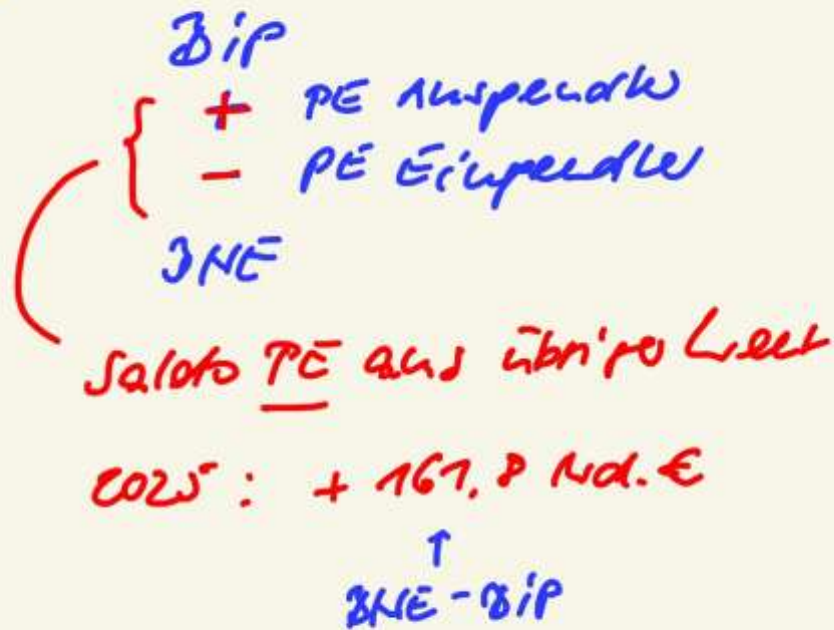 BIP
+ PE Auspendler
- PE Einpendler
BNE
Saldo PE aus übriger Welt
2025: + 161,8 Md. €
↑
BNE - BIP